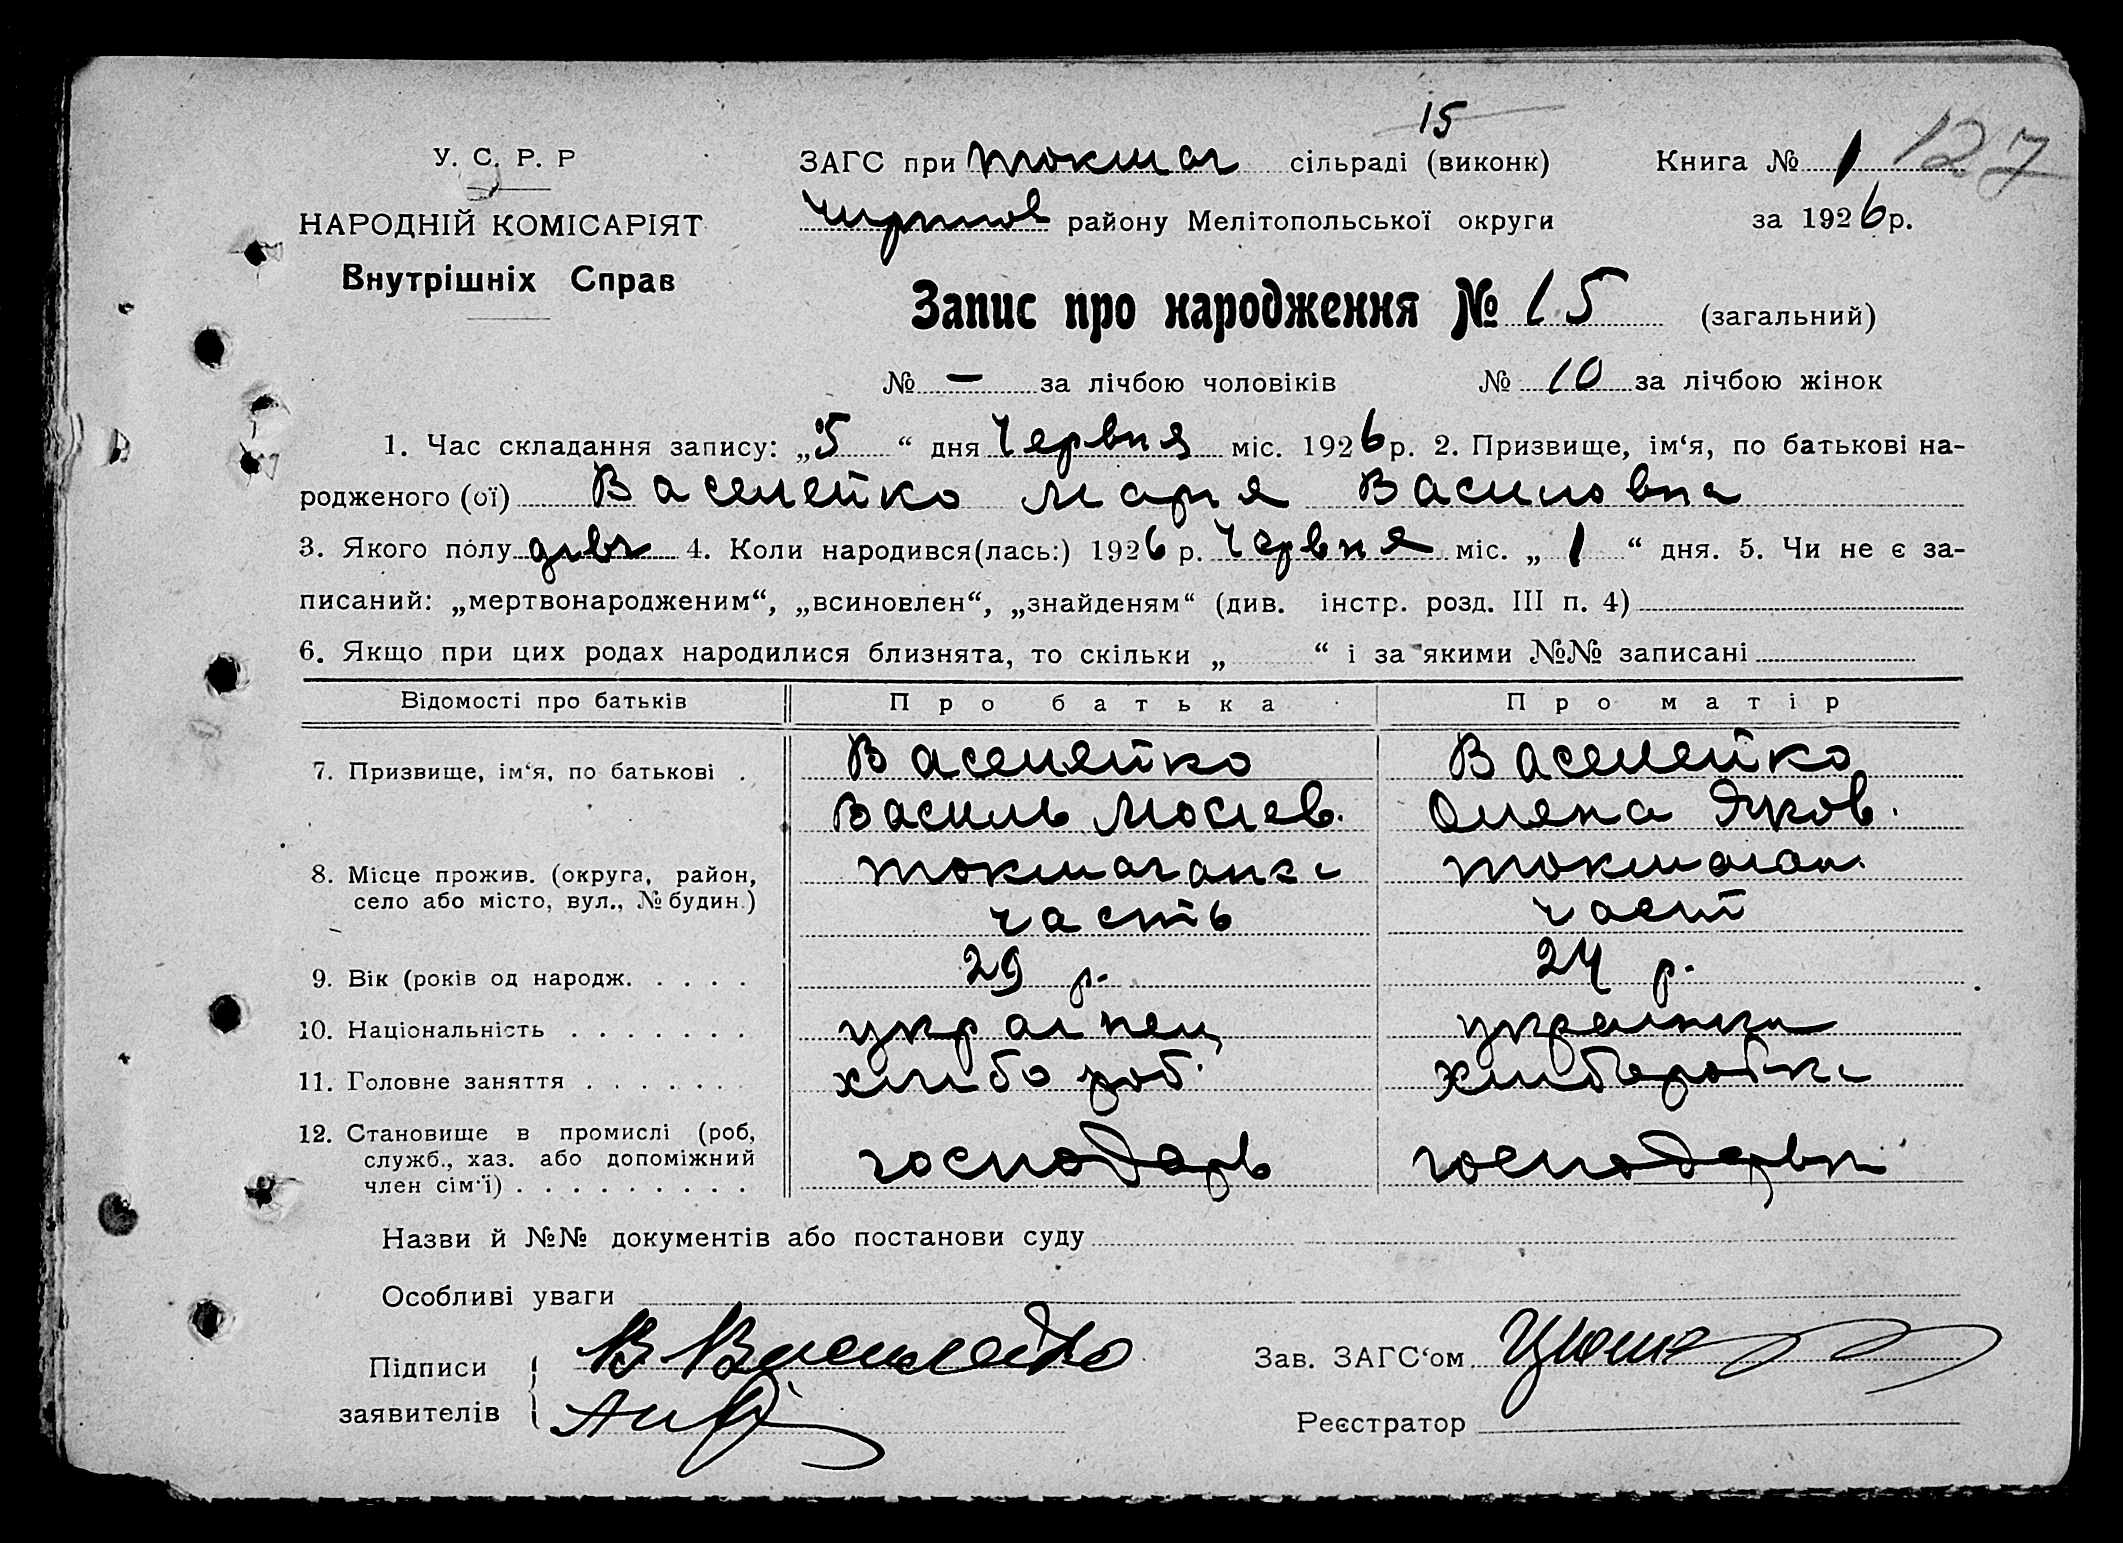 15
У. С. Р. Р
ЗАГС при Токмач сільраді (виконк)
Книга № 1 127
НАРОДНІЙ КОМІСАРІЯТ
району Мелітопольської округи
за 1926 р.
Внутрішніх Справ
Запис про народження № 15 (загальний)
№ — за лічбою чоловіків № 10 за лічбою жінок
1. Час складання запису: „5“ дня Червня міс. 1926 р. 2. Призвище, ім‘я, по батькові на-
родженого (ої) Василейко Марія Василовна
3. Якого полу дівч 4. Коли народився(лась:) 1926 р. Червня міс. „1“ дня. 5. Чи не є за-
писаний: „мертвонародженим“, „всиновлен“, „знайденям“ (див. інстр. розд. III п. 4)
6. Якщо при цих родах народилися близнята, то скільки „ “ і за якими №№ записані
Відомості про батьків Про батька Про матір
7. Призвище, ім‘я, по батькові . Василейко Василейко
Василь Мосіев. Олена Яков.
8. Місце прожив. (округа, район, село або місто, вул., № будин.) токмачанка токмачан.
часть част
9. Вік (років од народж. . . . . 29 р. 24 р.
10. Національність . . . . . . . українец українка
11. Головне заняття . . . . . . . хлібороб. хліборобка
12. Становище в промислі (роб,
служб., хаз. або допоміжний
член сім‘ї) . . . . . . . . . господарь господарка
Назви й №№ документів або постанови суду
Особливі уваги
Підписи В Василейко Зав. ЗАГС‘ом
заявителів
Реєстратор